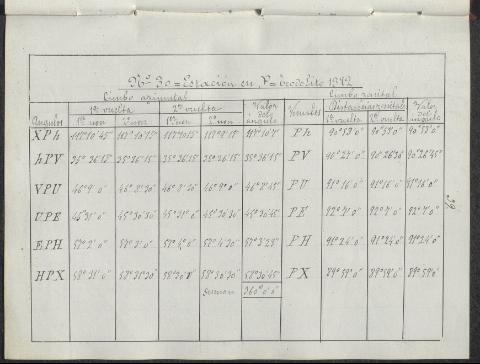 Nº 30 = Estación en P = Teodolito 1942
Limbo azimutal Limbo zenital
1ª vuelta 2ª vuelta Valor del ángulo Visuales Distancias zenitales Valor del ángulo
Angulos 1º non 2º non 1º non 2º non 1ª vuelta 2ª vuelta
XPh 117°10'45" 117°10'15" 117°10'15" Ph 90°53'0" 90°53'0" 90°53'0"
hPV 35°36'15" 35°36'15" 35°36'15" 35°36'15" PV 90°27'0" 90°26'30" 90°26'45"
VPU 46°9'0" 46°8'30" 46°8'30" 46°9'0" 46°8'45" PU 91°16'0" 91°16'0" 91°16'0"
UPE 45°31'0" 45°30'30" 45°31'0" 45°30'30" 45°30'45" PE 92°7'0" 92°7'0" 92°7'0"
EPH 57°3'0" 57°3'0" 57°4'0" 57°4'30" 57°3'23" PH 91°24'0" 91°24'0" 91°24'0"
HPX 58°31'0" 58°31'30" 58°30'0" 58°30'30" 58°30'45" PX 89°59'0" 89°59'0" 89°59'0"
Suman 360°0'0"
39